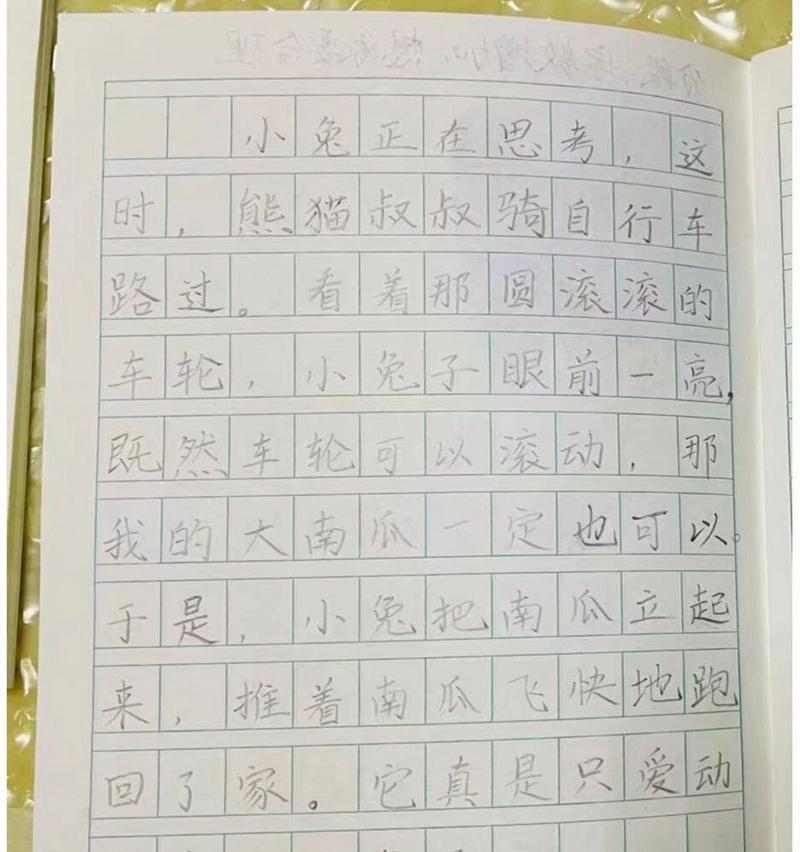 小兔正在思考，这
时，熊猫叔叔骑自行车
路过。看着那圆滚滚的
车轮，小兔子眼前一亮，
既然车轮可以滚动，那
我的大南瓜一定也可以。
于是，小兔把南瓜立起
来，推着南瓜飞快地跑
回了家。它真是只爱动